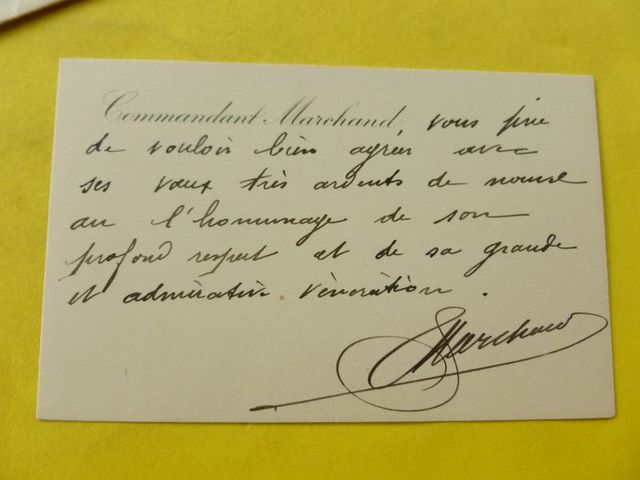 Commandant Marchand, vous prie
de vouloir bien agréer avec
ses vœux très ardents de nouvel
an l'hommage de son
profond respect et de sa grande
et admirative vénération.
Marchand